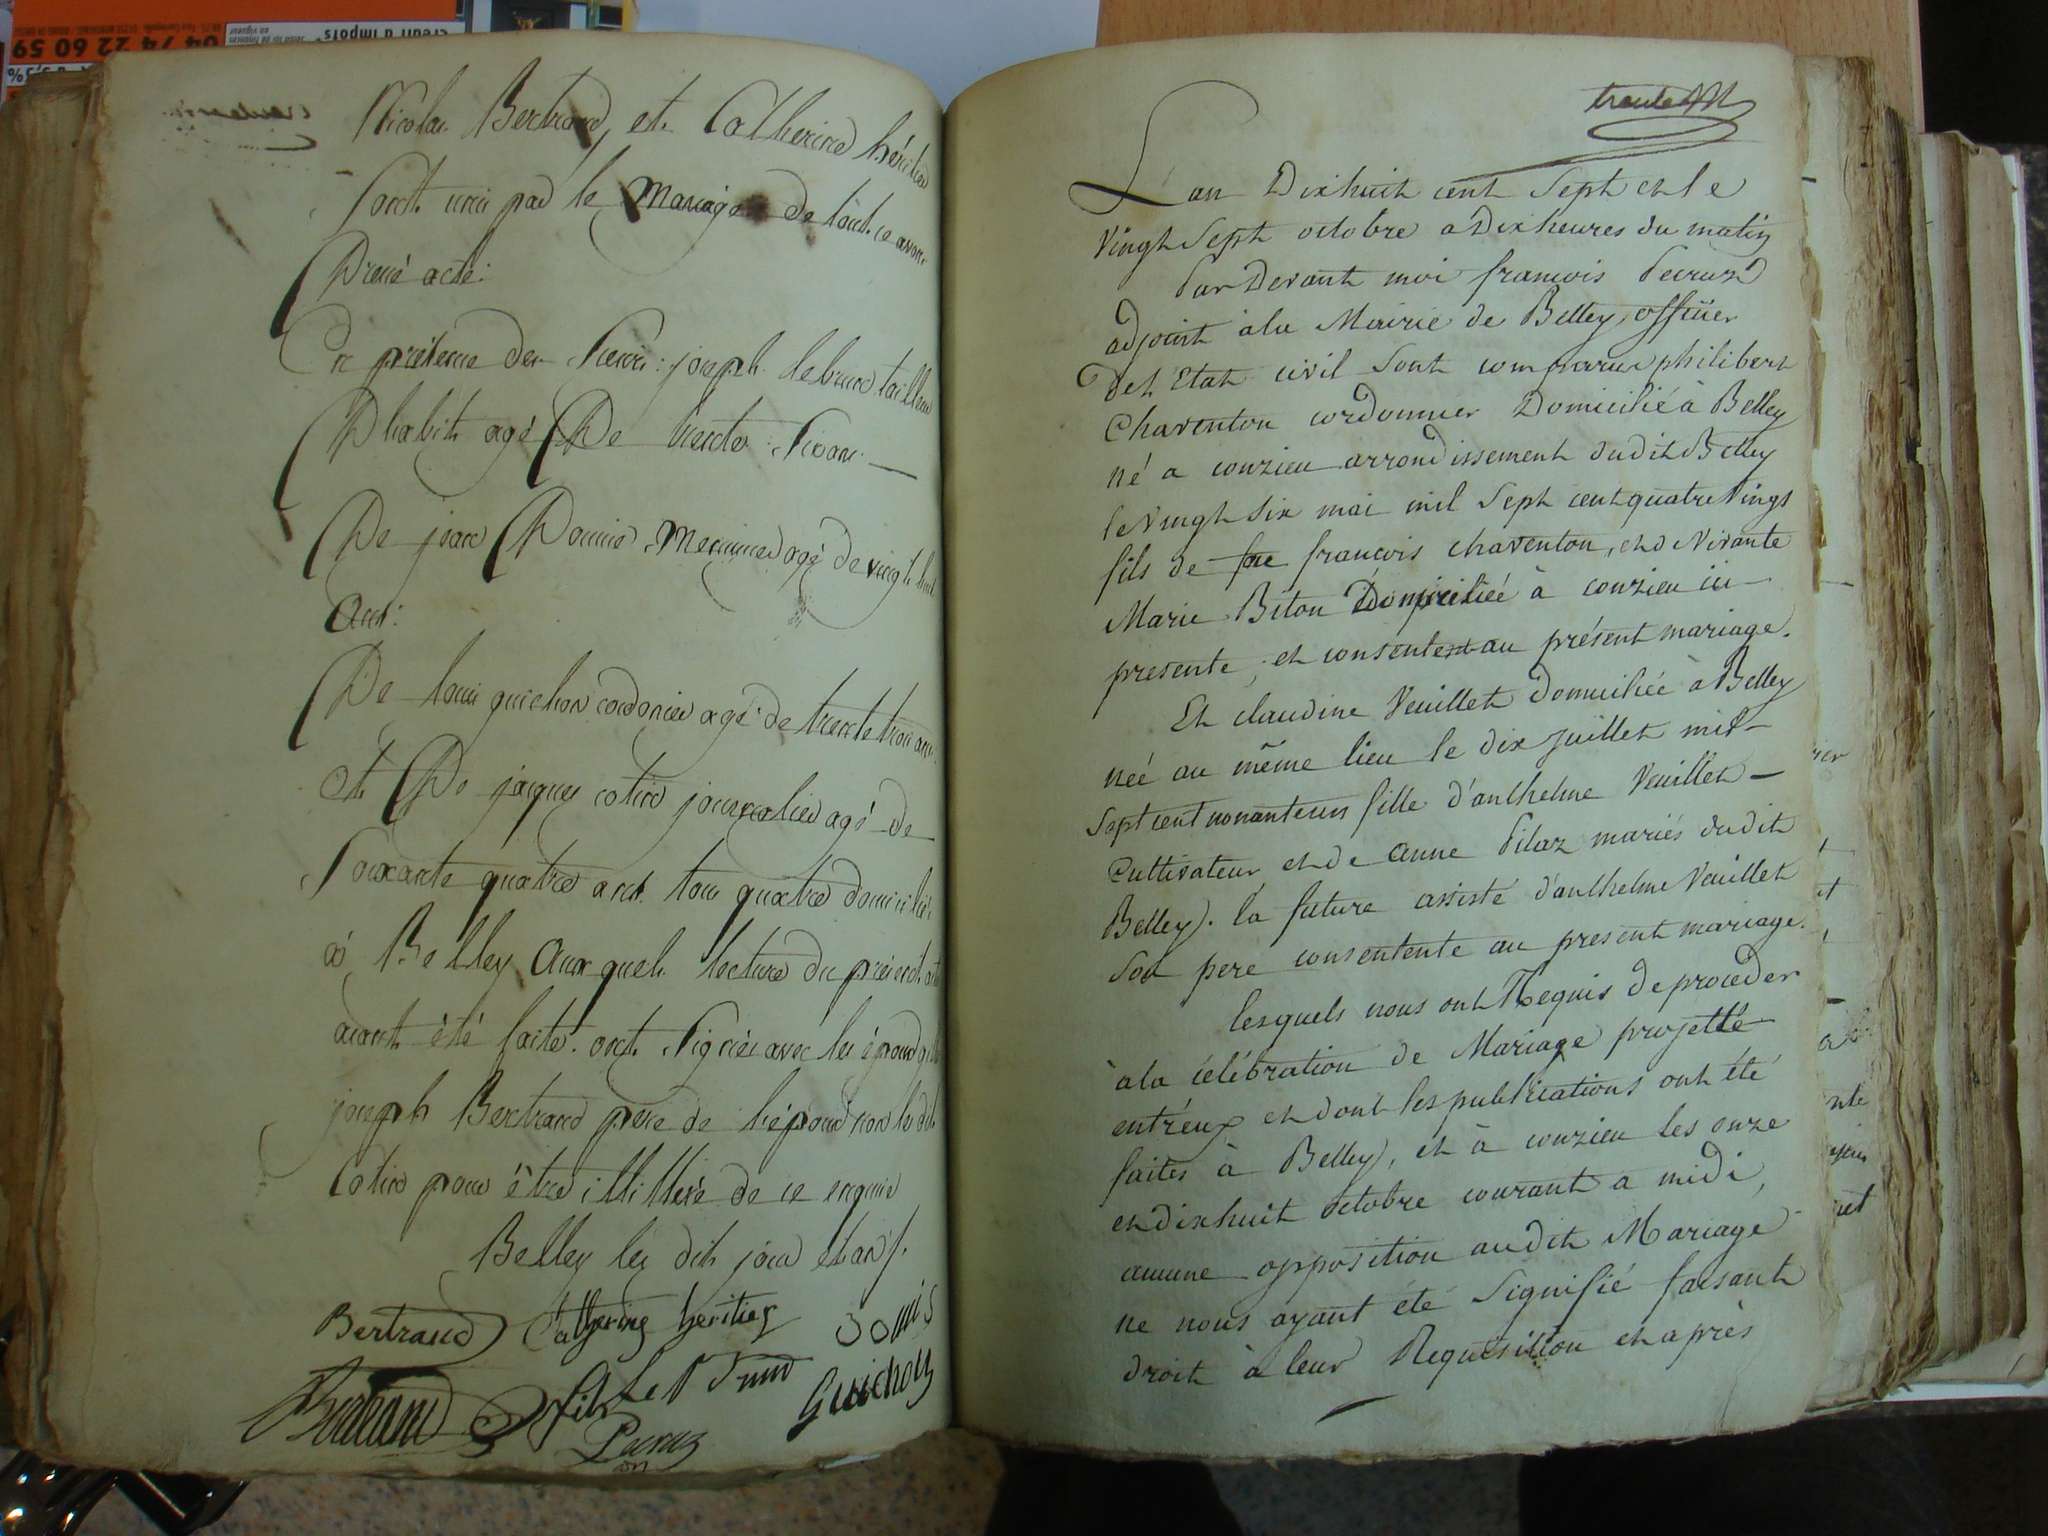 crédit d'impôts*
04 74 22 60 59
Nicolas Bertrand, et Catherine héritier
sont unis par le mariage de tout ce avons
Dressé acte:
En présence des sieurs: joseph lebrun tailleur
D'habits agé De trente six ans
De jean Domis Menuisier agé de vingt huit
ans:
De louis guichon cordonier agé de trente trois ans
et De jacques cotin journalier agé de
soixante quatre ans tous quatre domiciliés
à Belley auxquels lecture du présent acte
aiant été faite ont signés avec les époux
joseph Bertrand pere de l'époux non le dit
Cotin pour être illittéré de ce enquis
Belley les dits jour et an /.
Bertrand Catherine heritier Domis
Bertrand fils Le Brun Guichon
Pecruz
L'an Dixhuit cent sept et le
vingt sept octobre a Dix heures du matin
Par Devant moi francois Pecruz
adjoint à la Mairie de Belley, officier
De l'Etat civil sont comparus philibert
Chaventon cordonnier Domicilié à Belley
né a conzieu arrondissement dudit Belley
le vingt six mai mil sept cent quatre vingt
fils de feu francois chaventon, et de vivante
Marie Biton Domiciliée à conzieu ici
presente, et consentent au présent mariage.
Et claudine Veuillet domiciliée à Belley
neé au même lieu le dix juillet mil
sept cent nonante un fille d'anthelme Veuillet
Cultivateur et de anne Pilaz mariés dudit
Belley. la future assisté d'anthelme Veuillet
son pere consentente au present mariage.
lesquels nous ont Requis de proceder
à la célébration de Mariage projetté
entr'eux et dont les publications ont été
faites à Belley, et à conzieu les onze
et dixhuit octobre courant a midi,
aucune opposition au dit Mariage
ne nous ayant été signifié faisant
droit à leur Requisition et après